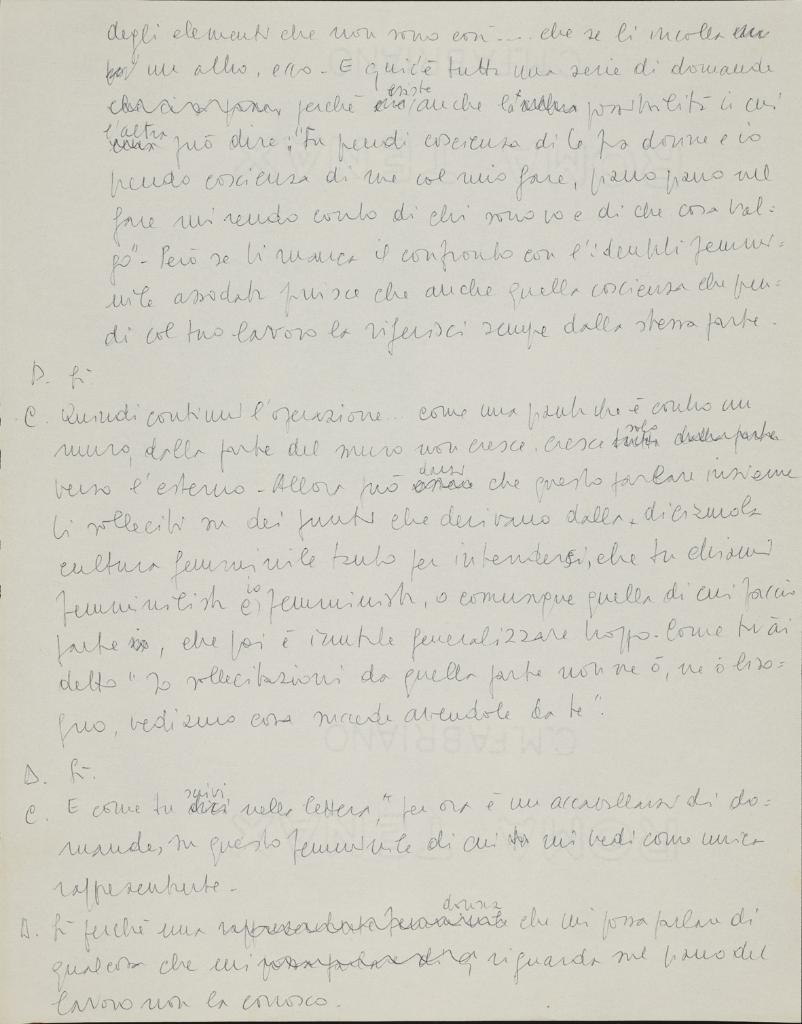 degli elementi che non sono così.... che se li incolla
un altro, ecco. E qui c'è tutta una serie di domande
perché esiste anche la possibilità in cui
l'altra può dire: "Tu prendi coscienza di te fra donne e io
prendo coscienza di me col mio fare, piano piano nel
fare mi rendo conto di chi sono io e di che cosa val=
go". Però se ti manca il confronto con l'identità femmi=
nile assodata finisce che anche quella coscienza che pren=
di col tuo lavoro la riferisci sempre dalla stessa parte.
D. Sì.
C. Quindi continui l'operazione... come una pianta che è contro un
muro, dalla parte del muro non cresce, cresce solo
verso l'esterno. Allora può darsi che questo parlare insieme
ti solleciti su dei punti che derivano dalla, diciamola
cultura femminile tanto per intenderci, che tu chiami
femminilista e io femminista, o comunque quella di cui faccio
parte io, che poi è inutile generalizzare troppo. Come tu ài
detto "Io sollecitazioni da quella parte non ne ò, ne ò biso=
gno, vediamo cosa succede avendole da te".
D. Sì.
C. E come tu scrivi nella lettera, "per ora è un accavallarsi di do=
mande, su questo femminile di cui mi vedi come unica
rappresentante.
D. Sì perché una donna che mi possa parlare di
qualcosa che mi riguarda sul piano del
lavoro non la conosco.
C.M. FABRIANO